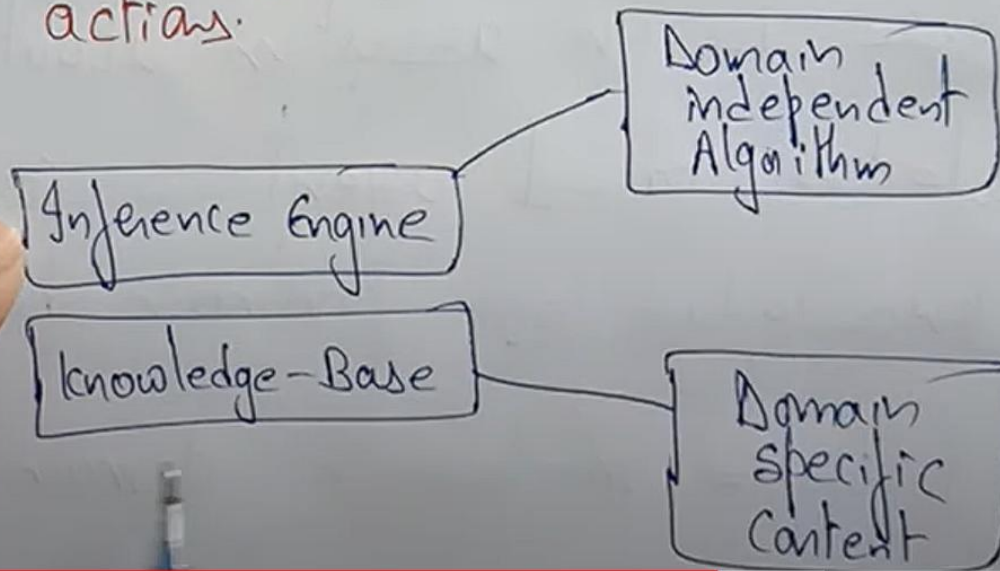 actions.
Domain
independent
Algorithm
Inference Engine
Knowledge-Base
Domain
specific
Content